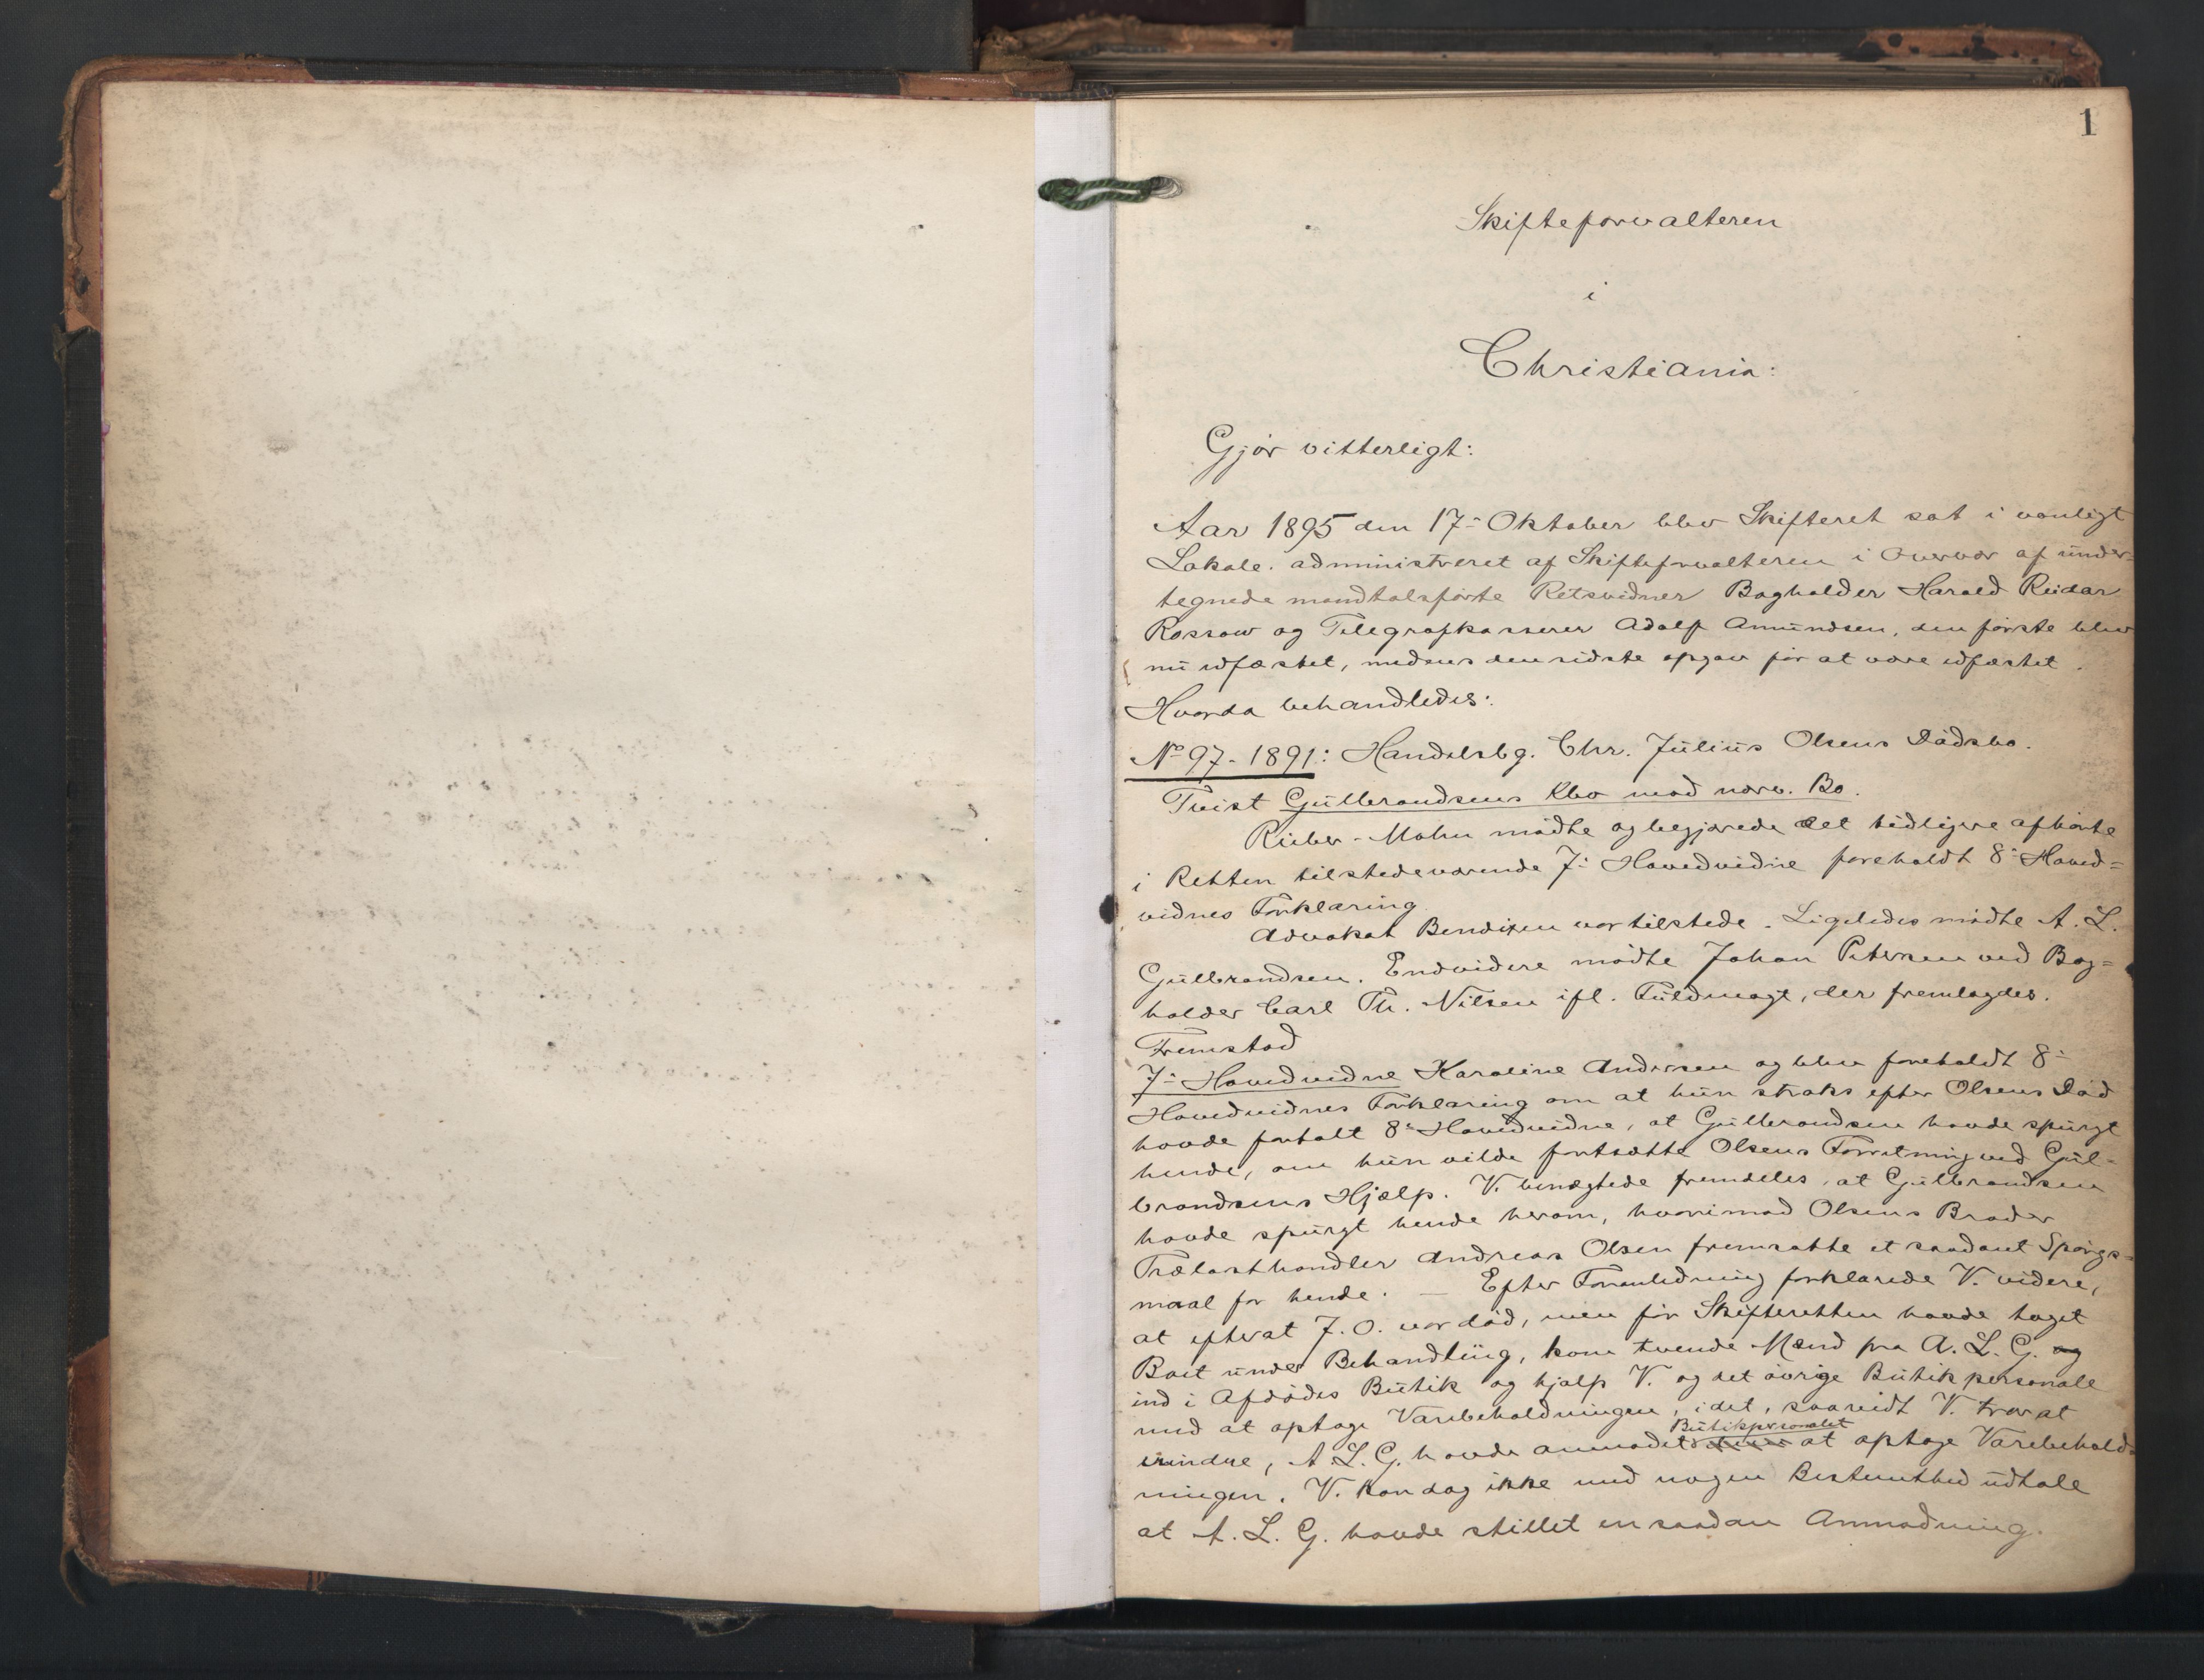 1
Skifteforvalteren
i
Christiania:
Gjør vitterligt:
Aar 1895 den 17- Oktober blev Skifteret sat i vanligt
Lokale. administreret af Skifteforvalteren i Overvær af under-
tegnede mandtalsførte Retsvidner Bogholder Harald Reidar
Rossow og Telegrafkasserer Adolf Amundsen, den første blev
nu edfæstet, medens den sidste opgav før at være edfæstet.
Hvorda behandledes:
No 97-1891: Handelsbg. Chr. Julius Olsens Dødsbo.
Tvist Gulbrandsens Kbo mod nærv. Bo.
Rieber-Mohn mødte og begjærede det tidligere afhørte
i Retten tilstedeværende 7: Hovedvidne foreholdt 8: Hoved=
vidnes Forklaring
Advokat Bendixen var tilstede. Ligeledes mødte A. L.
Gulbrandsen. Endvidere mødte Johan Petersen ved Bog=
holder Carl Th. Nilsen ifl. Fuldmagt, der fremlagdes.
Fremstod
7- Hovedvidne Karoline Andersen og blev foreholdt 8-
Hovedvidnes Forklaring om at hun straks efter Olsens Død
havde fortalt 8- Hovedvidne, at Gulbrandsen havde spurgt
hende, om hun vilde fortsætte Olsens Forretning ved Gul-
brandsens Hjælp. V. benægtede fremdeles, at Gulbrandsen
havde spurgt hende herom, hvorimod Olsens Broder
Trælasthandler Andreas Olsen fremsatte et saadant Spørgs=
maal for hende. — Efter Foranledning forklarede V. videre,
at efterat J. O. var død, men før Skifteretten havde taget
Boet under Behandling, kom tvende Mænd fra A. L. G. og
ind i Afdødes Butik og hjalp V. og det øvrige Butikpersonale
med at optage Varebeholdningen, idet, saavidt V. tror at
erindre, A. L. G. havde anmodet Butikpersonalet at optage Varebehold=
ningen. V. kan dog ikke med nogen Bestemthed udtale
at A. L. G. havde stillet en saadan Anmodning.